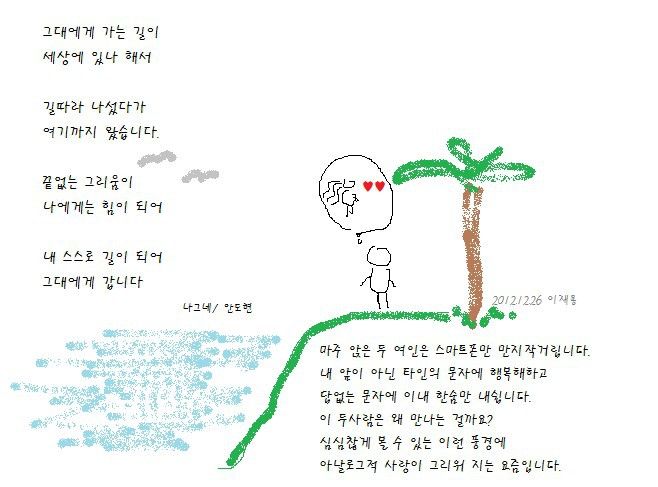 그대에게 가는 길이
세상에 있나 해서
길따라 나섰다가
여기까지 왔습니다.
끝없는 그리움이
나에게는 힘이 되어
내 스스로 길이 되어
그대에게 갑니다
나그네/ 안도현
20121226 이재룡
마주 앉은 두 여인은 스마트폰만 만지작거립니다.
내 앞이 아닌 타인의 문자에 행복해하고
답없는 문자에 이내 한숨만 내쉽니다.
이 두사람은 왜 만나는 걸까요?
심심찮게 볼 수 있는 이런 풍경에
아날로그적 사랑이 그리워 지는 요즘입니다.